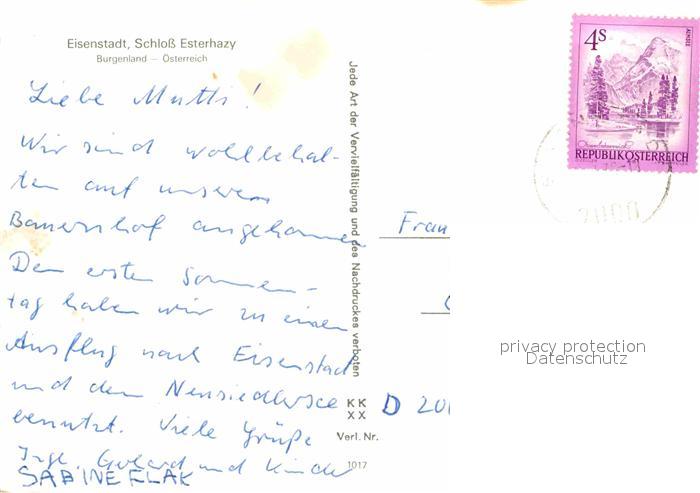 Eisenstadt, Schloß Esterhazy
Burgenland — Österreich
Liebe Mutti!
Wir sind wohlbehal-
ten auf unserem
Bauernhof angekommen
Den ersten Sonnen-
tag haben wir zu einem
Ausflug nach Eisenstadt
und dem Neusiedlersee
benutzt. Viele Grüße
Inge, Gerhard und Kinder
SABINE FLAK
Jede Art der Vervielfältigung und des Nachdruckes verboten
KK
XX
Verl. Nr.
1017
4S
ALMSEE
Oberösterreich
REPUBLIK ÖSTERREICH
Frau
D 20
privacy protection
Datenschutz